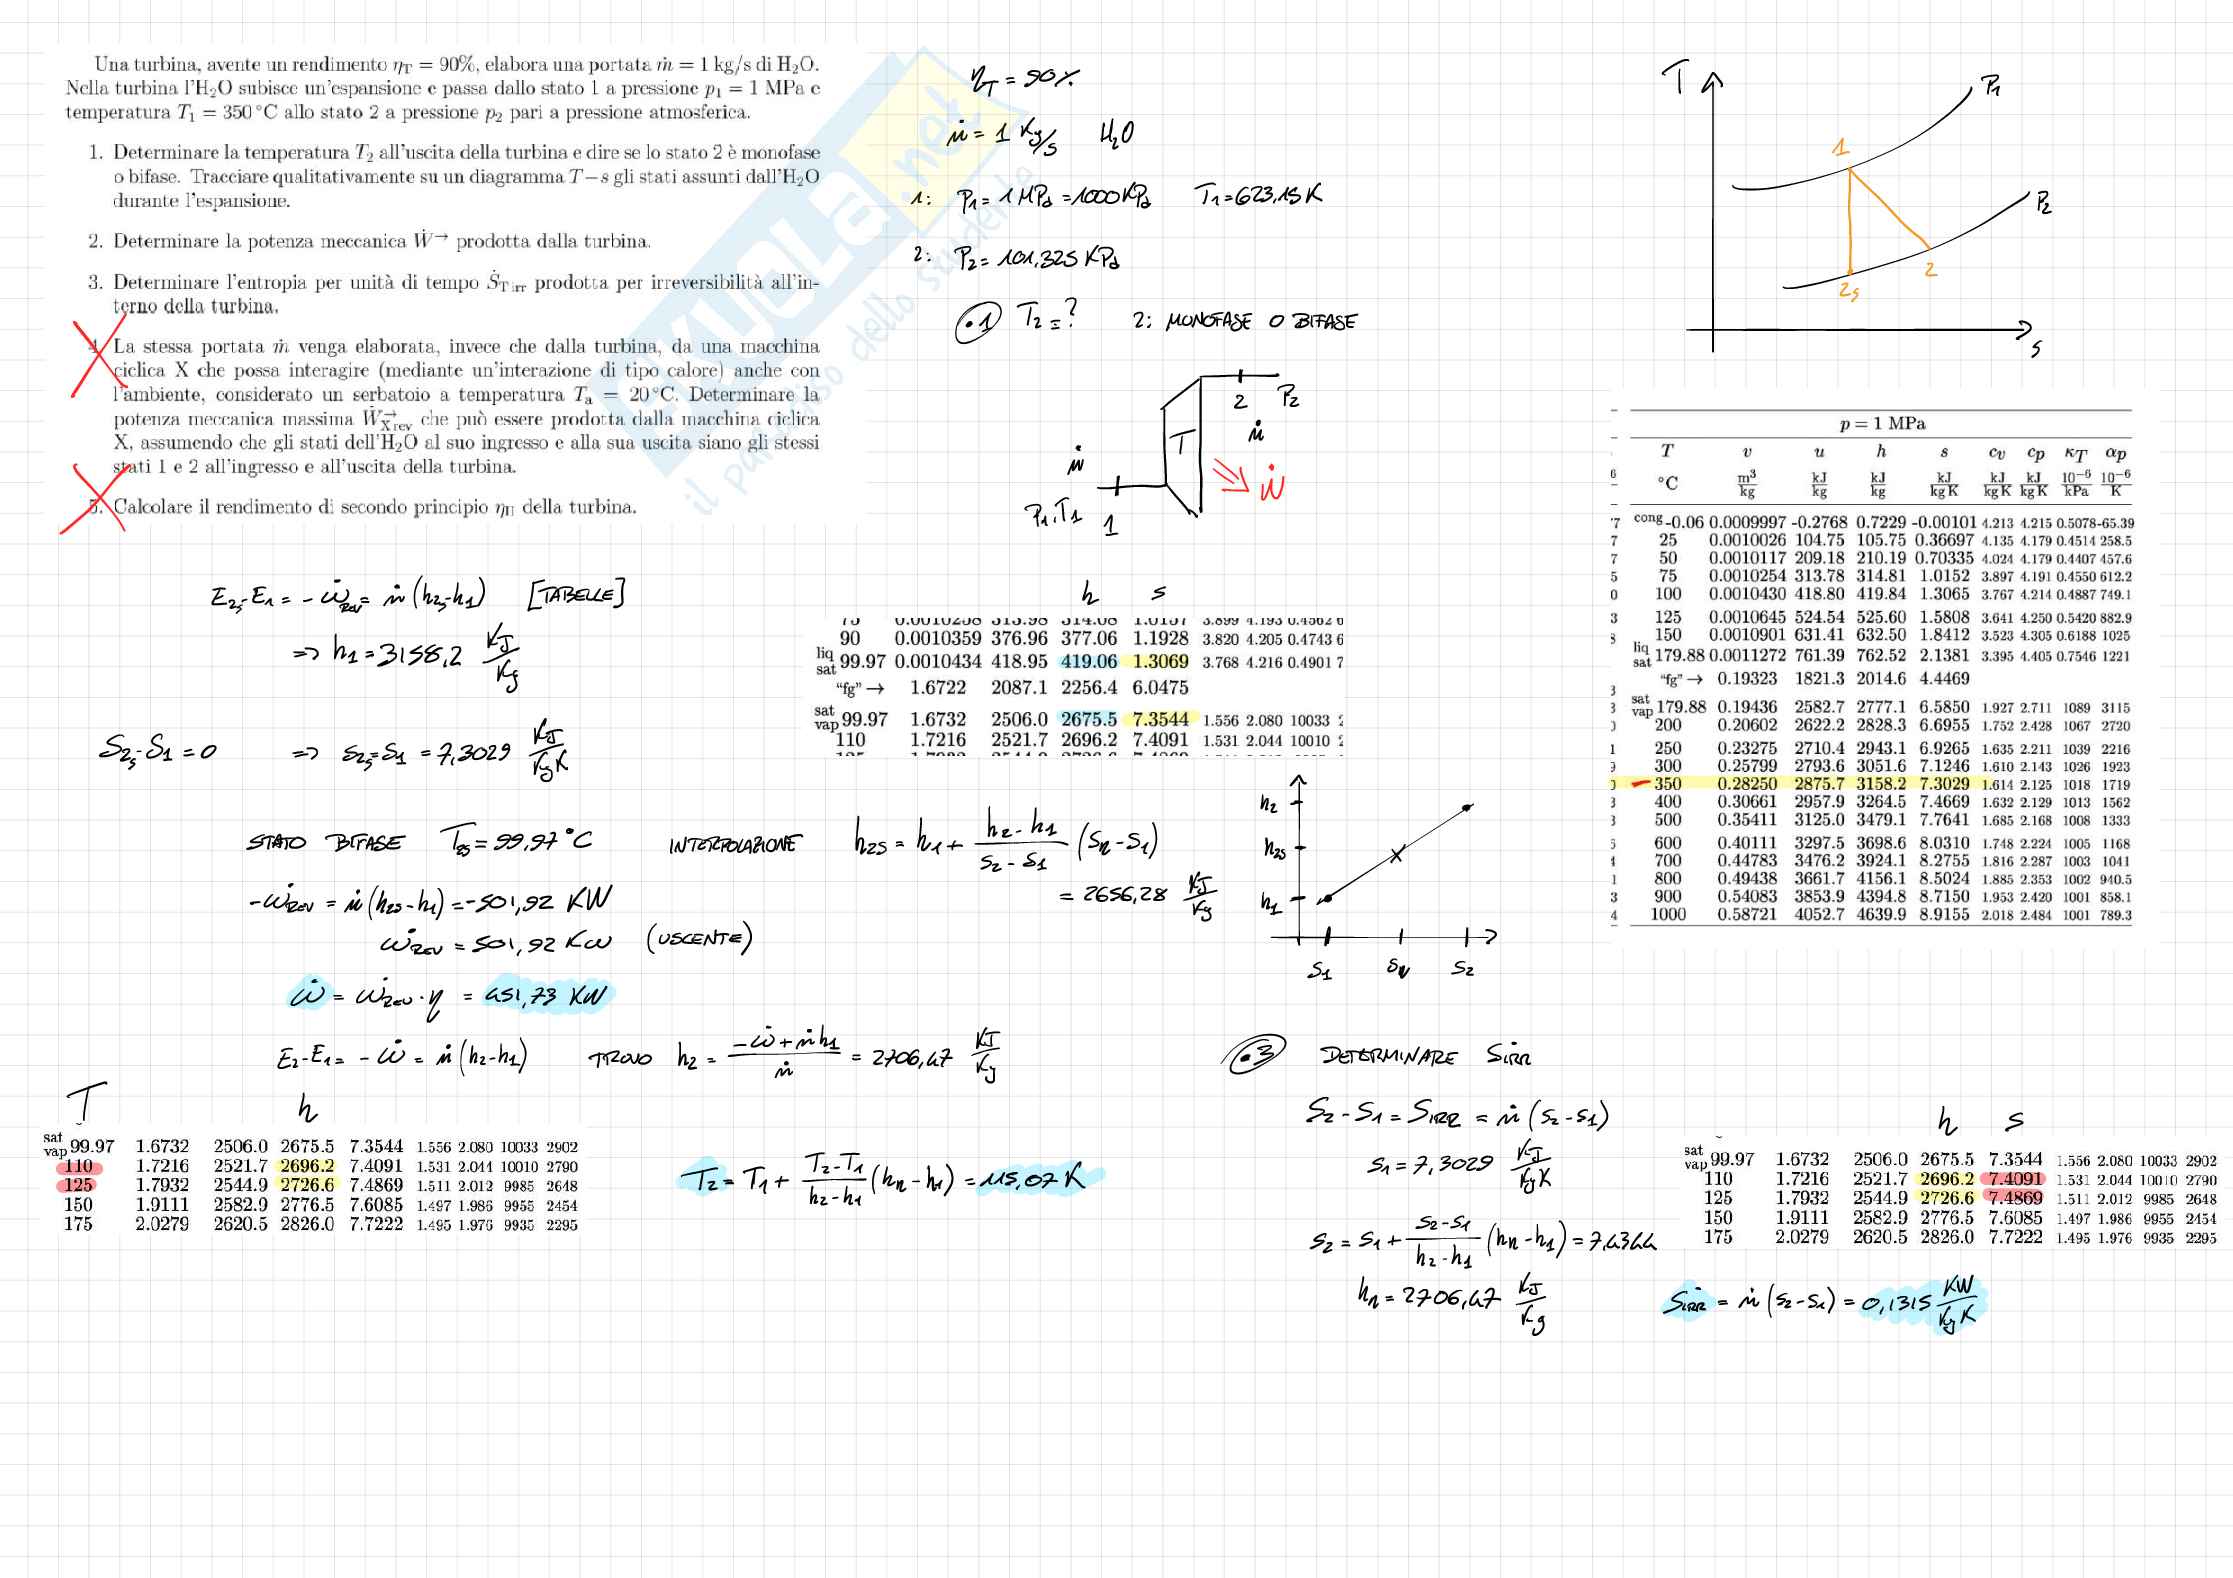 Una turbina, avente un rendimento ηT = 90%, elabora una portata ṁ = 1 kg/s di H₂O.
Nella turbina l'H₂O subisce un'espansione e passa dallo stato 1 a pressione p₁ = 1 MPa e
temperatura T₁ = 350 °C allo stato 2 a pressione p₂ pari a pressione atmosferica.
1. Determinare la temperatura T₂ all'uscita della turbina e dire se lo stato 2 è monofase
o bifase. Tracciare qualitativamente su un diagramma T−s gli stati assunti dall'H₂O
durante l'espansione.
2. Determinare la potenza meccanica Ẇ→ prodotta dalla turbina.
3. Determinare l'entropia per unità di tempo ṠT irr prodotta per irreversibilità all'in-
terno della turbina.
4. La stessa portata ṁ venga elaborata, invece che dalla turbina, da una macchina
ciclica X che possa interagire (mediante un'interazione di tipo calore) anche con
l'ambiente, considerato un serbatoio a temperatura Ta = 20 °C. Determinare la
potenza meccanica massima Ẇ→X rev che può essere prodotta dalla macchina ciclica
X, assumendo che gli stati dell'H₂O al suo ingresso e alla sua uscita siano gli stessi
stati 1 e 2 all'ingresso e all'uscita della turbina.
5. Calcolare il rendimento di secondo principio ηII della turbina.
skuola.net
il paradiso dello studente
ηT = 90%
ṁ = 1 Kg/s H₂O
1: P₁ = 1 MPa = 1000 KPa T₁ = 623,15 K
2: P₂ = 101,325 KPa
•1 T₂ = ? 2: MONOFASE O BIFASE
T P₂ 2 ṁ
ṁ Ẇ
P₁,T₁ 1
T P₁
1 P₂
2s 2
s
p = 1 MPa
T v u h s cv cp κT αp
°C m³/kg kJ/kg kJ/kg kJ/kg K kJ/kg K kJ/kg K 10⁻⁶/kPa 10⁻⁶/K
cong -0.06 0.0009997 -0.2768 0.7229 -0.00101 4.213 4.215 0.5078 -65.39
25 0.0010026 104.75 105.75 0.36697 4.135 4.179 0.4514 258.5
50 0.0010117 209.18 210.19 0.70335 4.024 4.179 0.4407 457.6
75 0.0010254 313.78 314.81 1.0152 3.897 4.191 0.4550 612.2
100 0.0010430 418.80 419.84 1.3065 3.767 4.214 0.4887 749.1
125 0.0010645 524.54 525.60 1.5808 3.641 4.250 0.5420 882.9
150 0.0010901 631.41 632.50 1.8412 3.523 4.305 0.6188 1025
liq sat 179.88 0.0011272 761.39 762.52 2.1381 3.395 4.405 0.7546 1221
"fg" → 0.19323 1821.3 2014.6 4.4469
sat vap 179.88 0.19436 2582.7 2777.1 6.5850 1.927 2.711 1089 3115
200 0.20602 2622.2 2828.3 6.6955 1.752 2.428 1067 2720
250 0.23275 2710.4 2943.1 6.9265 1.635 2.211 1039 2216
300 0.25799 2793.6 3051.6 7.1246 1.610 2.143 1026 1923
350 0.28250 2875.7 3158.2 7.3029 1.614 2.125 1018 1719
400 0.30661 2957.9 3264.5 7.4669 1.632 2.129 1013 1562
500 0.35411 3125.0 3479.1 7.7641 1.685 2.168 1008 1333
600 0.40111 3297.5 3698.6 8.0310 1.748 2.224 1005 1168
700 0.44783 3476.2 3924.1 8.2755 1.816 2.287 1003 1041
800 0.49438 3661.7 4156.1 8.5024 1.885 2.353 1002 940.5
900 0.54083 3853.9 4394.8 8.7150 1.953 2.420 1001 858.1
1000 0.58721 4052.7 4639.9 8.9155 2.018 2.484 1001 789.3
E₂s-E₁ = -ẇRev = ṁ(h₂s-h₁) [TABELLE]
⇒ h₁ = 3158,2 KJ/Kg
S₂s-S₁ = 0 ⇒ s₂s=s₁ = 7,3029 KJ/KgK
h s
90 0.0010359 376.96 377.06 1.1928 3.820 4.205 0.4743
liq sat 99.97 0.0010434 418.95 419.06 1.3069 3.768 4.216 0.4901
"fg" → 1.6722 2087.1 2256.4 6.0475
sat vap 99.97 1.6732 2506.0 2675.5 7.3544 1.556 2.080 10033
110 1.7216 2521.7 2696.2 7.4091 1.531 2.044 10010
STATO BIFASE T₂s = 99,97 °C INTERPOLAZIONE h₂s = h₁ + (h₂-h₁)/(s₂-s₁) (sn-s₁)
= 2656,28 KJ/Kg
h₂
h₂s
h₁
s₁ sn s₂
-ẇRev = ṁ(h₂s-h₁) = -501,92 KW
ẇRev = 501,92 KW (USCENTE)
ẇ = ẇRev · η = 451,73 KW
E₂-E₁ = -ẇ = ṁ(h₂-h₁) TROVO h₂ = (-ẇ+ṁh₁)/ṁ = 2706,47 KJ/Kg
T h
sat vap 99.97 1.6732 2506.0 2675.5 7.3544 1.556 2.080 10033 2902
110 1.7216 2521.7 2696.2 7.4091 1.531 2.044 10010 2790
125 1.7932 2544.9 2726.6 7.4869 1.511 2.012 9985 2648
150 1.9111 2582.9 2776.5 7.6085 1.497 1.986 9955 2454
175 2.0279 2620.5 2826.0 7.7222 1.495 1.976 9935 2295
T₂ = T₁ + (T₂-T₁)/(h₂-h₁) (hn-h₁) = 115,07 K
•3 DETERMINARE ṠIRR
S₂-S₁ = SIRR = ṁ(s₂-s₁)
s₁ = 7,3029 KJ/KgK
s₂ = s₁ + (s₂-s₁)/(h₂-h₁) (hn-h₁) = 7,4344
hn = 2706,47 KJ/Kg
h s
sat vap 99.97 1.6732 2506.0 2675.5 7.3544 1.556 2.080 10033 2902
110 1.7216 2521.7 2696.2 7.4091 1.531 2.044 10010 2790
125 1.7932 2544.9 2726.6 7.4869 1.511 2.012 9985 2648
150 1.9111 2582.9 2776.5 7.6085 1.497 1.986 9955 2454
175 2.0279 2620.5 2826.0 7.7222 1.495 1.976 9935 2295
ṠIRR = ṁ(s₂-s₁) = 0,1315 KW/KgK